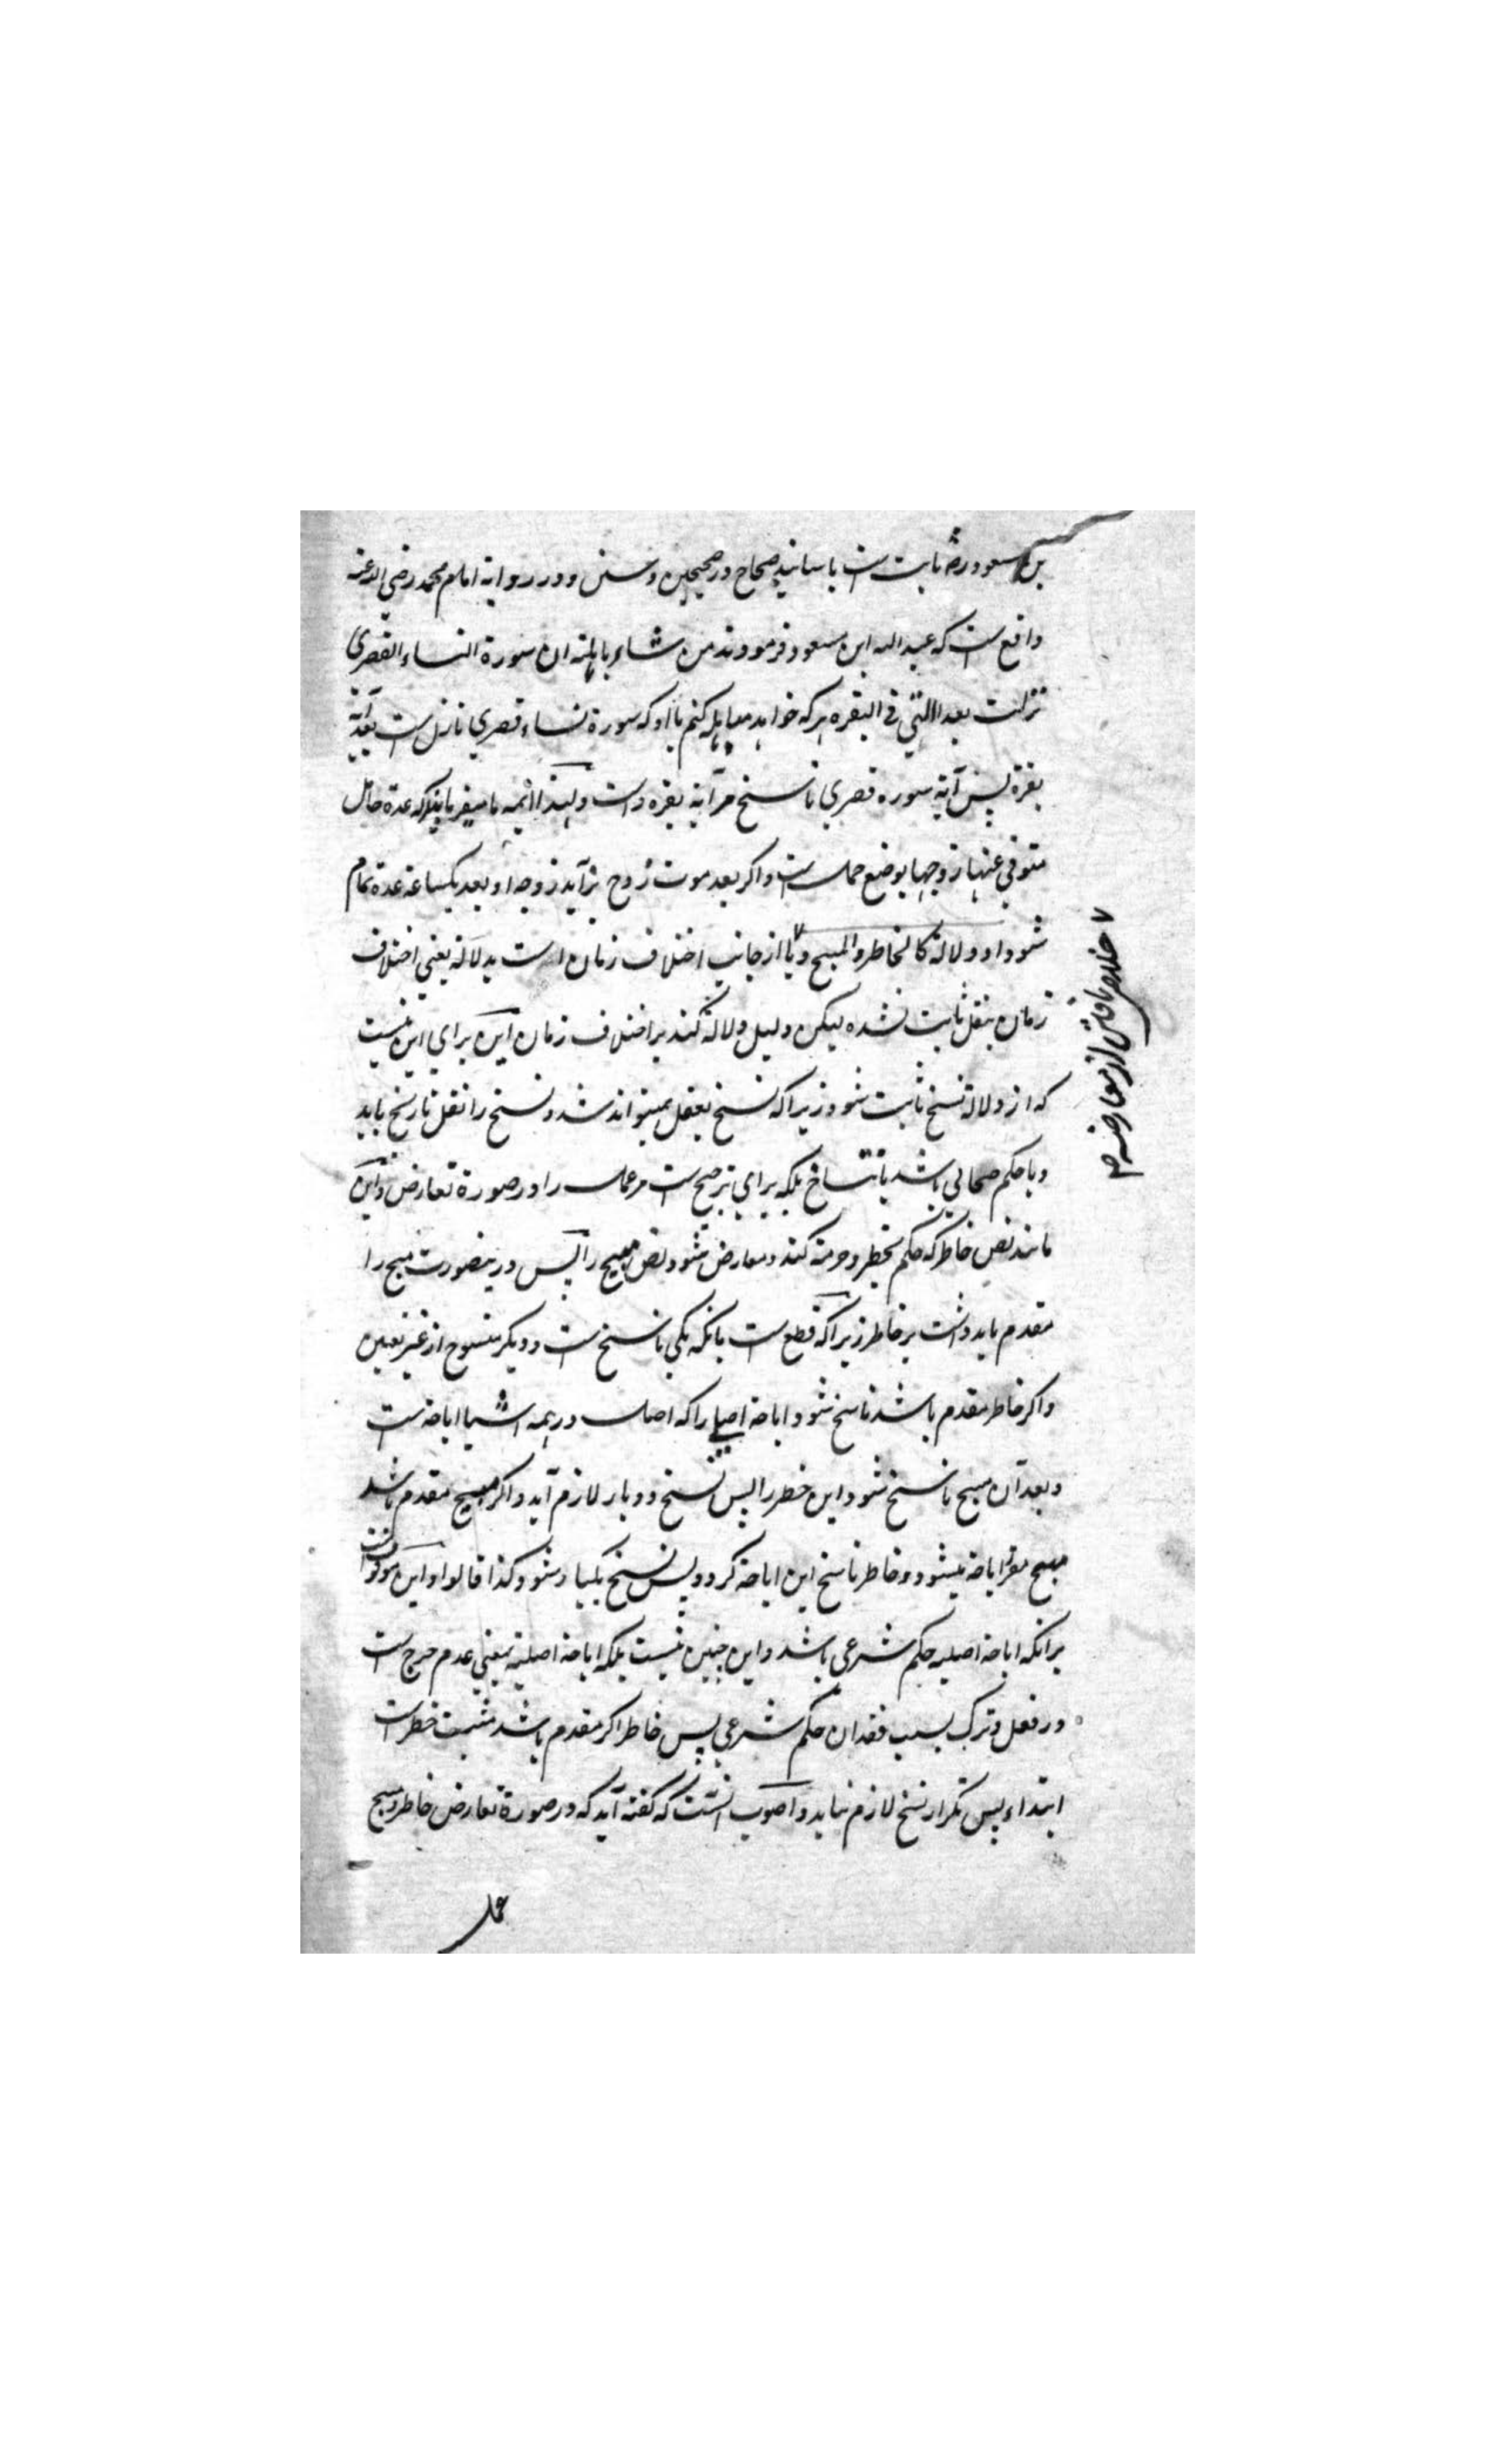 بن مسعود رضه ثابت است باسانید صحاح در صحیحین و سنن و در روایة امام محمد رضی الله عنه
واقع است که عبد الله ابن مسعود فرمودند من شاء باهلته ان سورة النساء القصری
نزلت بعد اللتی فی البقره هر که خواهد مباهله کنم با او که سورة نساء قصری نازل است بعد آیة
بقرة پس آیة سوره قصری ناسخ مر آیة بقره است و لهذا ائمه ما میفرمایند که عدة حامل
متوفی عنها زوجها بوضع حمل است و اگر بعد موت زوج بزآید زوجه او بعد یکساعة عدة تمام
شود او دلالة کالخاطر والمبیح و یا از جانب اختلاف زمان است بدلالة یعنی اختلاف
زمان بنقل ثابت نشده لیکن دلیل دلالة کند بر اختلاف زمان این برای این نیست
که از دلالة نسخ ثابت شود زیراکه نسخ بعقل نمیتواند شد و نسخ را نقل تاریخ باید
و یا حکم صحابی باشد بانتساخ بلکه برای ترجیح است مر عمل را در صورة تعارض و این
مانند نص خاطر که حکم بخطر و حرمة کند و معارض شود نص مبیح را پس درینصورت مبیح را
مقدم باید داشت بر خاطر زیراکه قطع است بانکه یکی ناسخ است و دیگر منسوخ از غیر تعین
و اگر خاطر مقدم باشد ناسخ شود اباحة اصلی را که اصل در همه اشیا اباحة است
و بعد آن مبیح ناسخ شود این خطر را پس نسخ دو بار لازم آید و اگر مبیح مقدم باشد
مبیح مقرر اباحة میشود و خاطر ناسخ این اباحة گردد پس نسخ یکبار شود کذا قالوا و این موقوف است
برانکه اباحة اصلیه حکم شرعی باشد و این چنین نیست بلکه اباحة اصلیة بمعنی عدم حرج است
در فعل و ترک بسبب فقدان حکم شرعی پس خاطر اگر مقدم باشد مثبت خطر است
ابتداء پس تکرار نسخ لازم نیاید و اصوب آنست که گفته آید که در صورة تعارض خاطر و مبیح
عمل